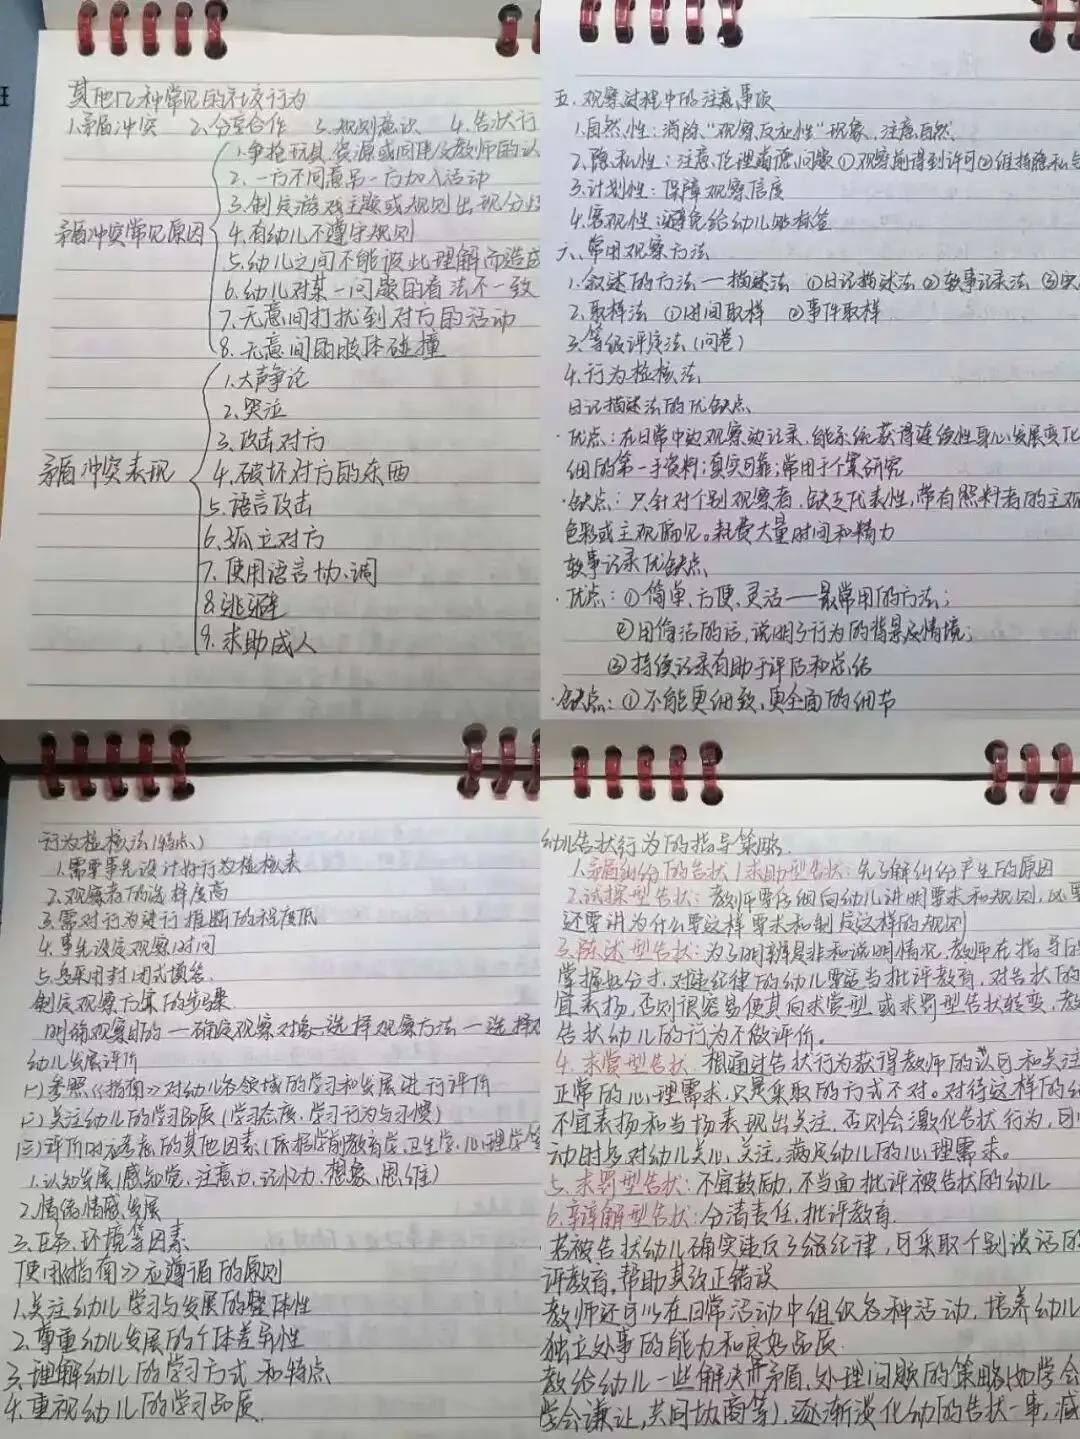 班
其他几种常见的社交行为
1.矛盾冲突 2.分享合作 3.规则意识 4.告状行
矛盾冲突常见原因
1.争抢玩具、资源或同伴及教师的认
2.一方不同意另一方加入活动
3.制定游戏主题或规则出现分歧
4.有幼儿不遵守规则
5.幼儿之间不能彼此理解而造成
6.幼儿对某一问题的看法不一致
7.无意间打扰到对方的活动
8.无意间的肢体碰撞
矛盾冲突表现
1.大声争论
2.哭泣
3.攻击对方
4.破坏对方的东西
5.语言攻击
6.孤立对方
7.使用语言协调
8.逃避
9.求助成人
五.观察过程中的注意事项
1.自然性:消除"观察反应性"现象,注意自然
2.隐私性:注意伦理道德问题①观察前得到许可②维持隐私
3.计划性:保障观察信度
4.客观性:避免给幼儿贴标签
六.常用观察方法
1.叙述的方法——描述法 ①日记描述法 ②轶事记录法 ③
2.取样法 ①时间取样 ②事件取样
3.等级评定法(问卷)
4.行为检核法
日记描述法的优缺点
·优点:在日常中边观察边记录,能系统获得连续性身心发展变化
细的第一手资料;真实可靠;常用于个案研究
·缺点:只针对个别观察者,缺乏代表性,带有照料者的主观
色彩或主观偏见。耗费大量时间和精力
轶事记录优缺点
·优点:①简单、方便、灵活——最常用的方法;
②用简洁的话,说明了行为的背景及情境;
③持续记录有助于评估和总结
·缺点:①不能更细致、更全面的细节
行为检核法(特点)
1.需要事先设计好行为检核表
2.观察者的选择度高
3.需对行为进行推断的程度低
4.事先设定观察时间
5.多采用封闭式填答.
制定观察方案的步骤
明确观察目的—确定观察对象—选择观察方法—选择
幼儿发展评价
(一)参照《指南》对幼儿各领域的学习和发展进行评价
(二)关注幼儿的学习品质(学习态度、学习行为与习惯)
(三)评价时应考虑的其他因素(依据学前教育学、卫生学、心理学等
1.认知发展(感知觉、注意力、记忆力、想象、思维)
2.情绪情感发展
3.任务、环境等因素
使用《指南》应遵循的原则
1.关注幼儿学习与发展的整体性
2.尊重幼儿发展的个体差异性
3.理解幼儿的学习方式和特点
4.重视幼儿的学习品质.
幼儿告状行为的指导策略.
1.矛盾纠纷的告状/求助型告状:先了解纠纷产生的原因
2.试探型告状:教师要仔细向幼儿讲明要求和规则,必要
还要讲为什么要这样要求和制定这样的规则
3.陈述型告状:为了明辨是非和说明情况,教师在指导时
掌握好分寸,对违纪律的幼儿要适当批评教育,对告状的
宜表扬,否则很容易使其向求赏型或求罚型告状转变,教
告状幼儿的行为不做评价。
4.求赏型告状:想通过告状行为获得教师的认可和关注
正常的心理需求,只是采取的方式不对。对待这样的幼
不宜表扬和当场表现出关注,否则会激化告状行为,可
动时多对幼儿关心、关注,满足幼儿的心理需求。
5.求罚型告状:不宜鼓励,不当面批评被告状的幼儿
6.辩解型告状:分清责任,批评教育.
若被告状幼儿确实违反了纪律,可采取个别谈话的
评教育,帮助其改正错误
教师还可以在日常活动中组织各种活动,培养幼儿
独立处事的能力和良好品质.
教给幼儿一些解决矛盾、处理问题的策略(如学会
学会谦让,共同协商等),逐渐淡化幼的告状一事,减